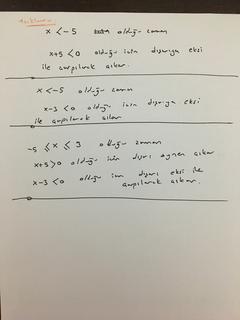 Açıklama
x < -5 olduğu zaman
x+5 < 0 olduğu için dışarıya eksi
ile çarpılarak çıkar.
x < -5 olduğu zaman
x-3 < 0 olduğu için dışarıya eksi
ile çarpılarak çıkar
-5 ≤ x ≤ 3 olduğu zaman
x+5 > 0 olduğu için dışarı aynen çıkar
x-3 < 0 olduğu için dışarı eksi ile
çarpılarak çıkar.